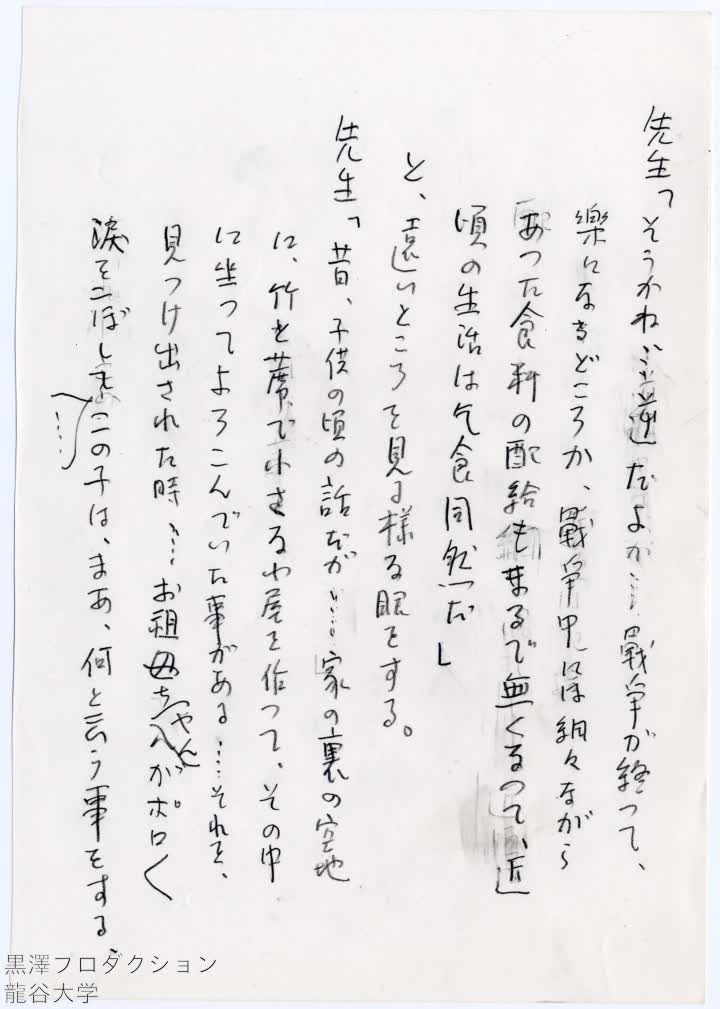 先生「そうかね……逆だよが……戰争が経って、
樂になるどころか、戰争中には細々ながら
あった食料の配給もまるで無くなって、近
頃の生活は乞食同然だ」
と、遠いところを見る様な眼をする。
先生「昔、子供の頃の話だが……家の裏の空地
に、竹と蓆で小さな小屋を作って、その中
に坐ってよろこんでいた事がある……それを、
見つけ出された時……お祖母ちゃんがポロ〱
涙をこぼして……この子は、まあ、何と言う事をする、
黒澤プロダクション
龍谷大学